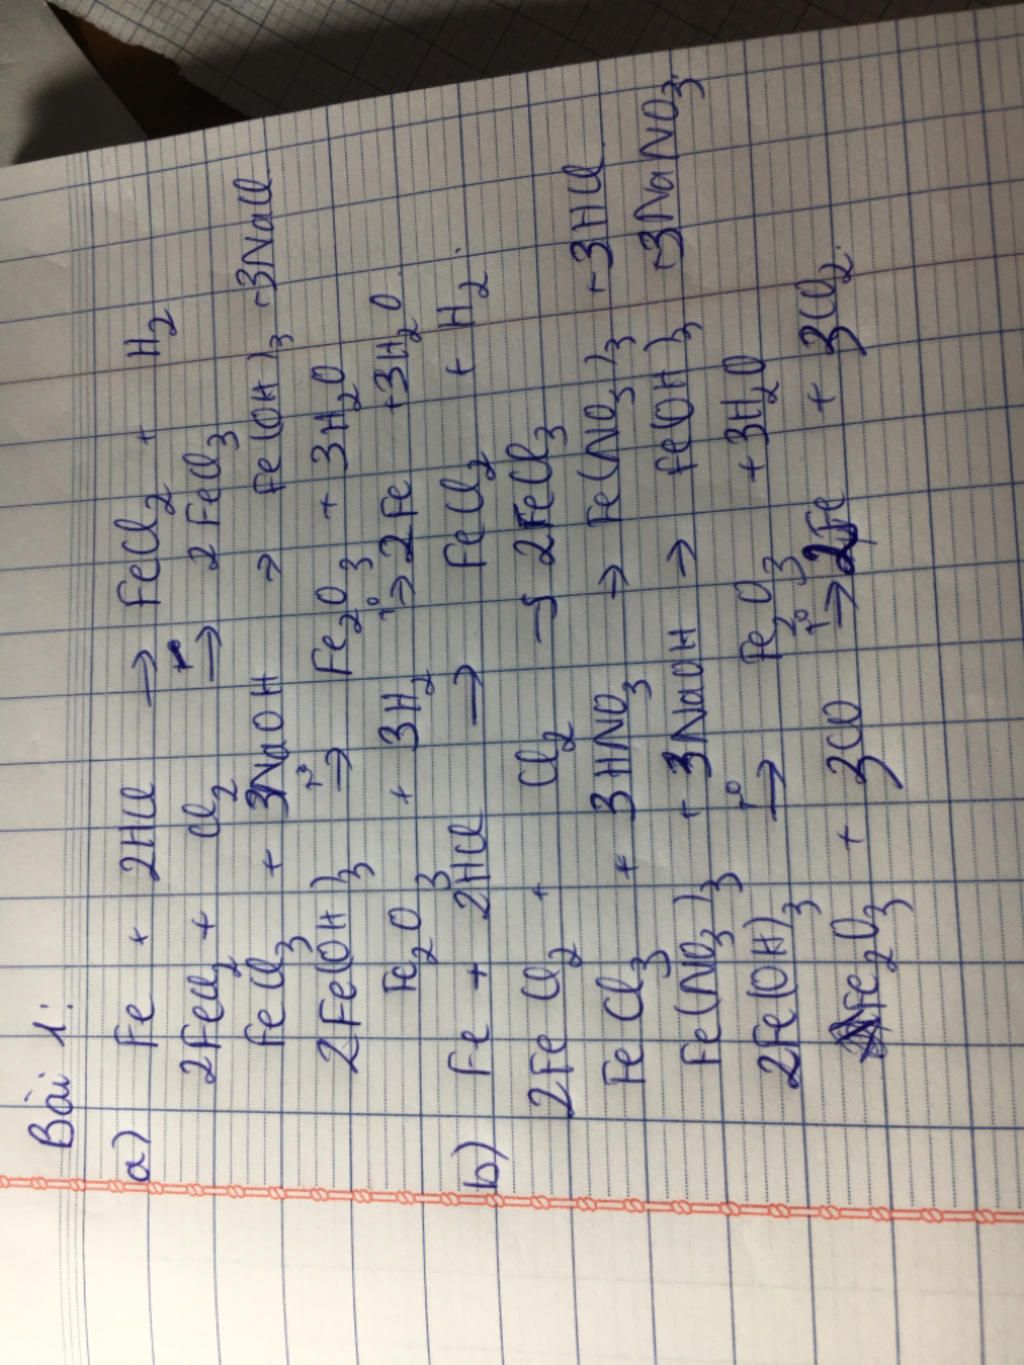 Bài 1:
a) Fe + 2HCl → FeCl₂ + H₂
2FeCl₂ + Cl₂ →(t) 2FeCl₃
FeCl₃ + 3NaOH → Fe(OH)₃ + 3NaCl
2Fe(OH)₃ →(t°) Fe₂O₃ + 3H₂O
Fe₂O₃ + 3H₂ →(t°) 2Fe + 3H₂O
b) Fe + 2HCl → FeCl₂ + H₂.
2FeCl₂ + Cl₂ → 2FeCl₃
FeCl₃ + 3HNO₃ → Fe(NO₃)₃ + 3HCl
Fe(NO₃)₃ + 3NaOH → Fe(OH)₃ + 3NaNO₃
2Fe(OH)₃ →(t°) Fe₂O₃ + 3H₂O
Fe₂O₃ + 3CO →(t°) 2Fe + 3CO₂.